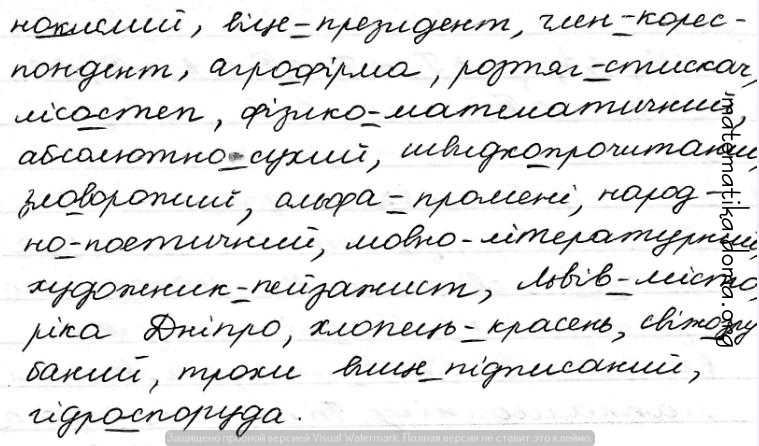 ноклеїй, віце-президент, член-корес-
пондент, агрофірма, розтяг-стискач,
лісостеп, фізико-математичний,
абсолютно сухий, швидкопрочитаний,
зловорожий, альфа-промені, народ-
но-поетичний, мовно-літературний,
художник-пейзажист, Львів-місто,
ріка Дніпро, хлопець-красень, свіжозру
баний, трохи вище підписаний,
гідроспоруда.
matematikadoma.org
Защищено пробной версией Visual Watermark. Полная версия не ставит это клеймо.